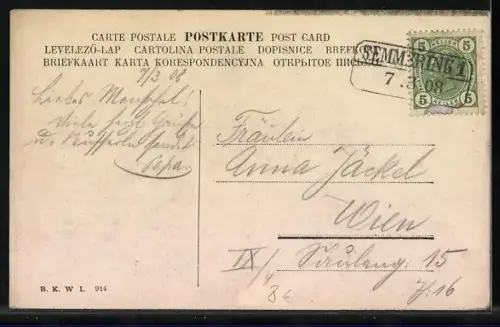 CARTE POSTALE POSTKARTE POST CARD
LEVELEZŐ-LAP CARTOLINA POSTALE DOPISNICE BREFKO
BRIEFKAART KARTA KORESPONDENCYJNA ОТКРЫТОЕ ПИСЬМО
5 HELLER 5
SEMMERING 1
7. 08
5 HELLER 5
7/3 08
Liebes
Viele herzl. Grüße
u. sendet
Papa
Fräulein
Anna Jäckel
Wien
IX/4 15
B. K. W. I. 914